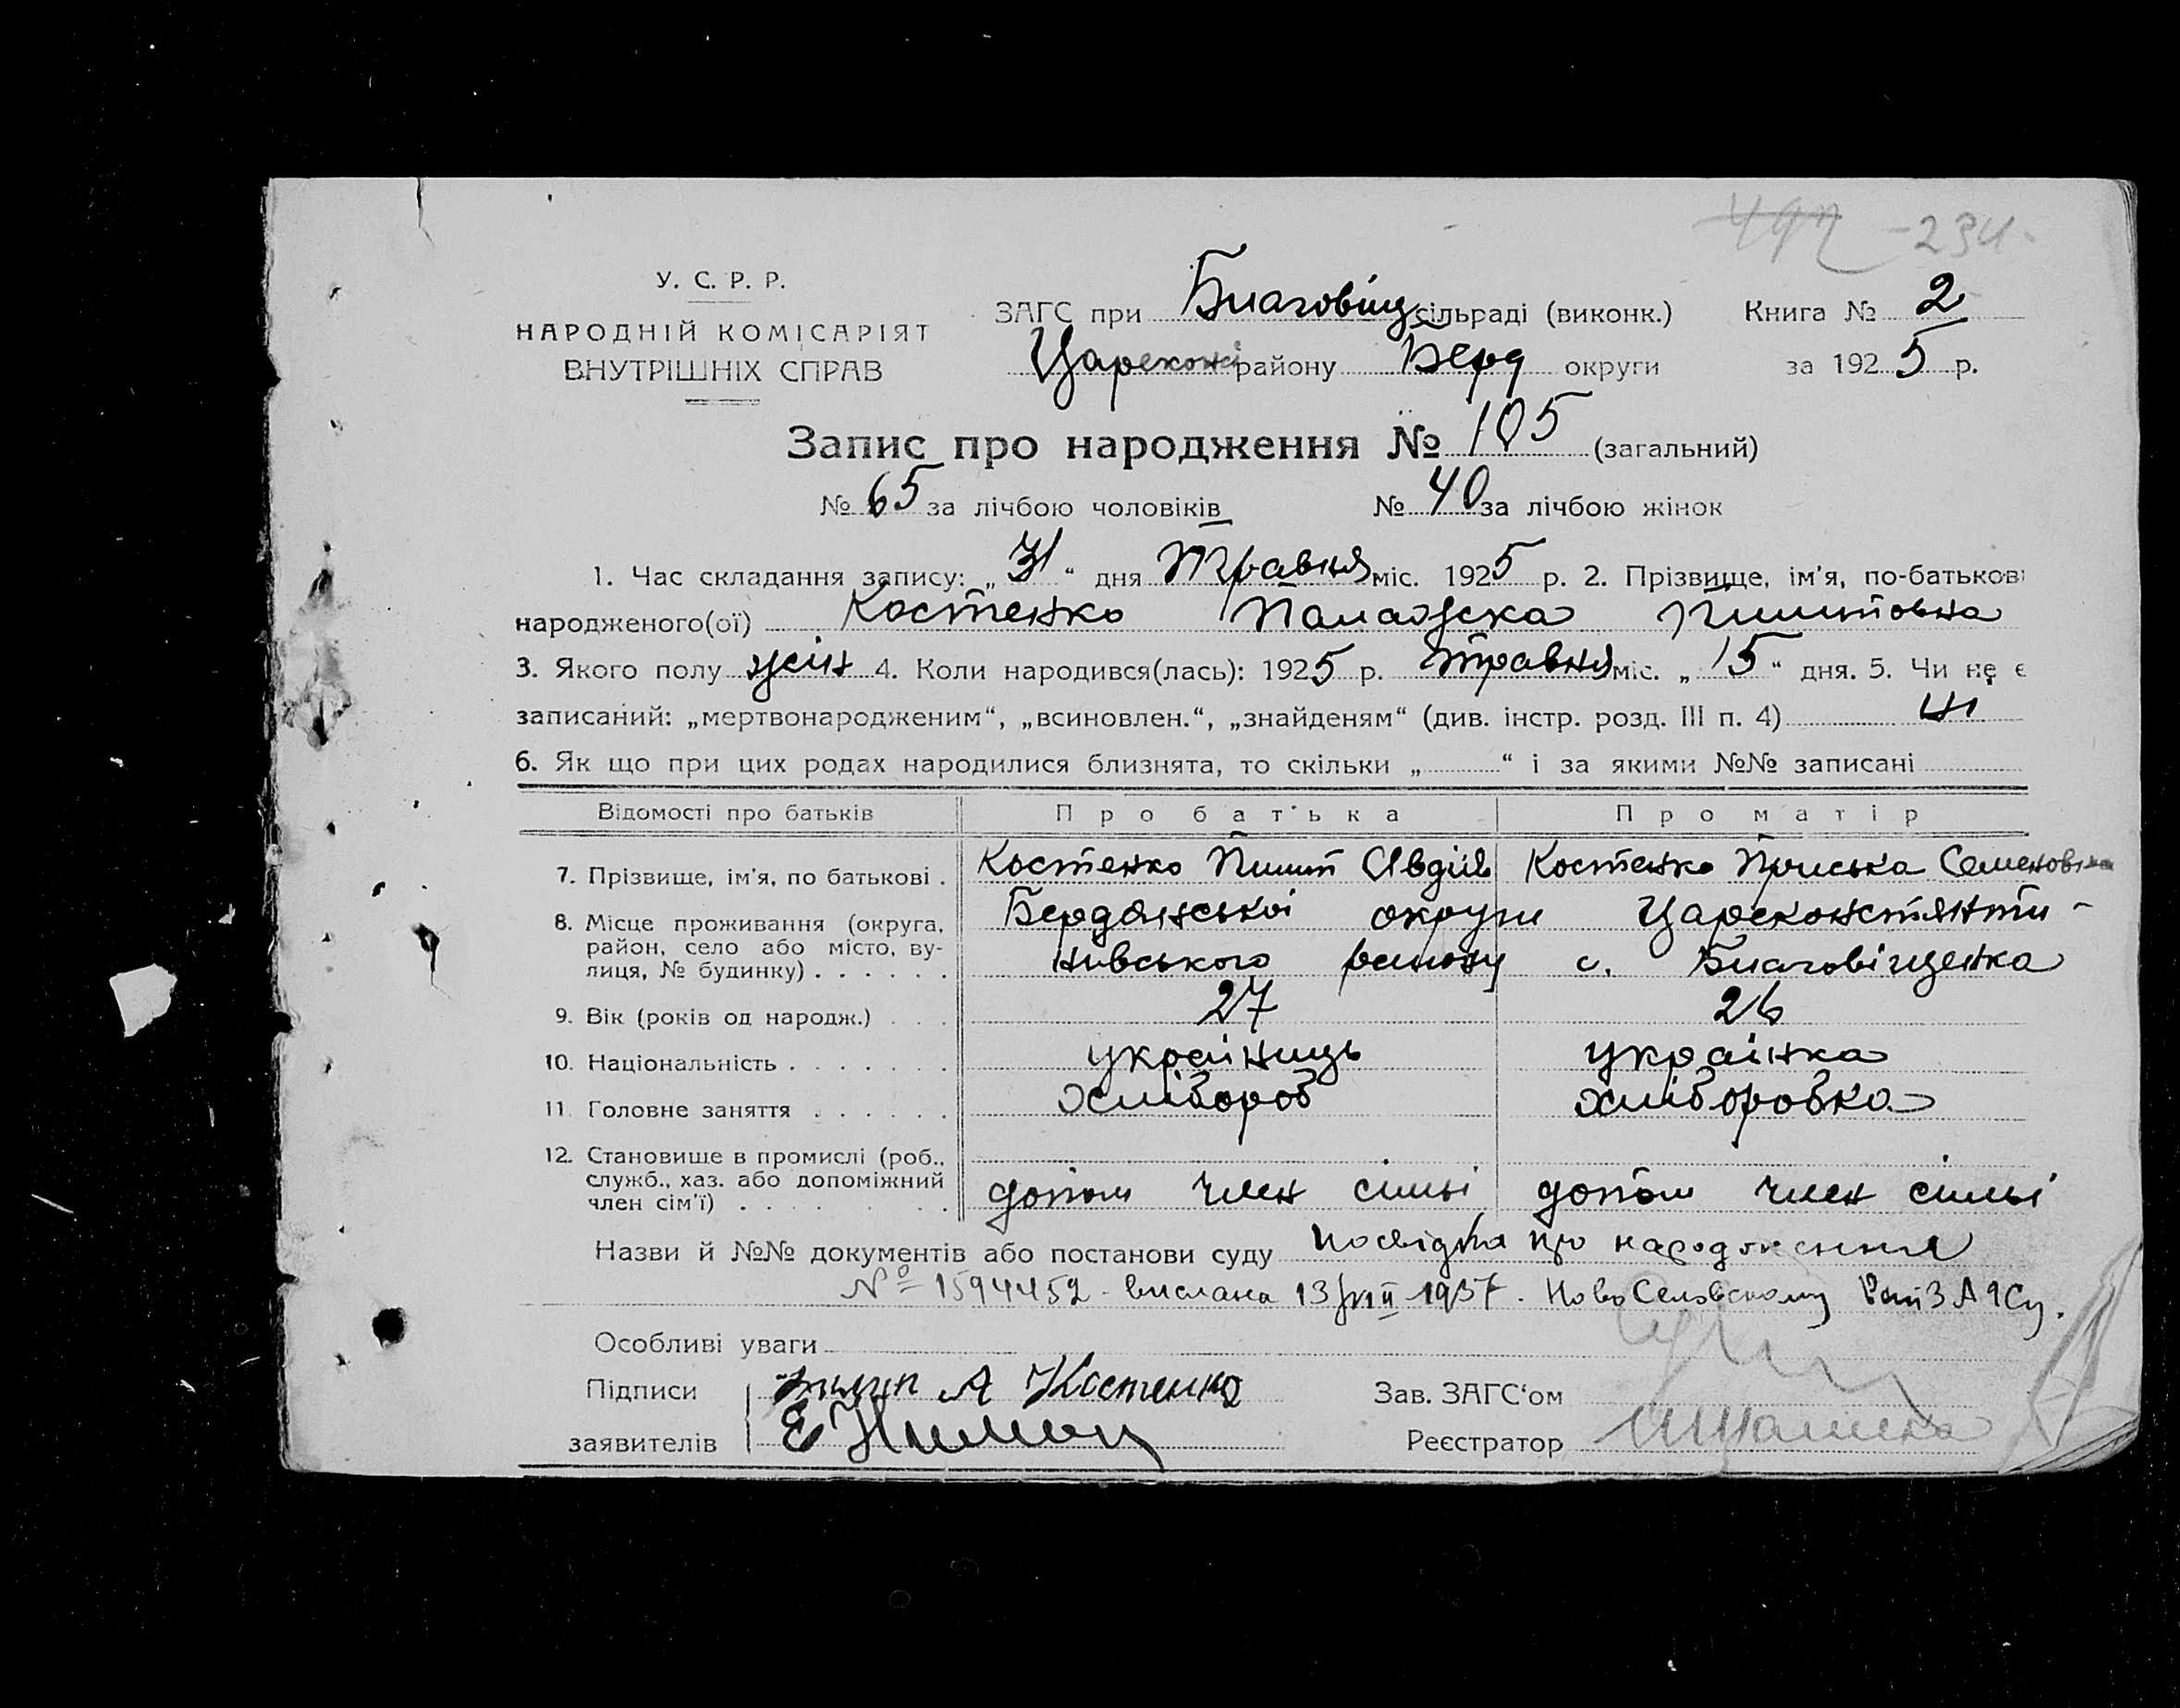 492 -234-
У. С. Р. Р.
НАРОДНІЙ КОМІСАРІЯТ
ВНУТРІШНІХ СПРАВ
ЗАГС при Благовіщ сільраді (виконк.) Книга № 2
Царекон району Берд округи за 1925 р.
Запис про народження № 105 (загальний)
№ 65 за лічбою чоловіків № 40 за лічбою жінок
1. Час складання запису: „31“ дня Травня міс. 1925 р. 2. Прізвище, ім'я, по-батькові
народженого(ої) Костенко Палажка Пилиповна
3. Якого полу жін 4. Коли народився(лась): 1925 р. травня міс. „15“ дня. 5. Чи не є
записаний: „мертвонародженим“, „всиновлен.“, „знайденям“ (див. інстр. розд. III п. 4) ні
6. Як що при цих родах народилися близнята, то скільки „ “ і за якими №№ записані
Відомості про батьків Про батька Про матір
7. Прізвище, ім'я, по батькові . Костенко Пилип Явдіїв Костенко Приська Семеновна
8. Місце проживання (округа, район, село або місто, вулиця, № будинку) . . . . . . Бердянської округи Цареконстянти-
нивського району с. Благовіщенка
9. Вік (років од народж.) . . . 27 26
10. Національність . . . . . . . украіниць украінка
11. Головне заняття . . . . . . хлібороб хлібородка
12. Становише в промислі (роб.,
служб., хаз. або допоміжний
член сім'ї) . . . . . . . . допом член сімьі допом член сімьі
Назви й №№ документів або постанови суду посвідка про народження
№ 1594452 - вислана 13/VIII 1937. НовоСеловскому РайЗАГСу.
Особливі уваги
Підписи Пилип А Костенко Зав. ЗАГС'ом
заявителів Е Реєстратор